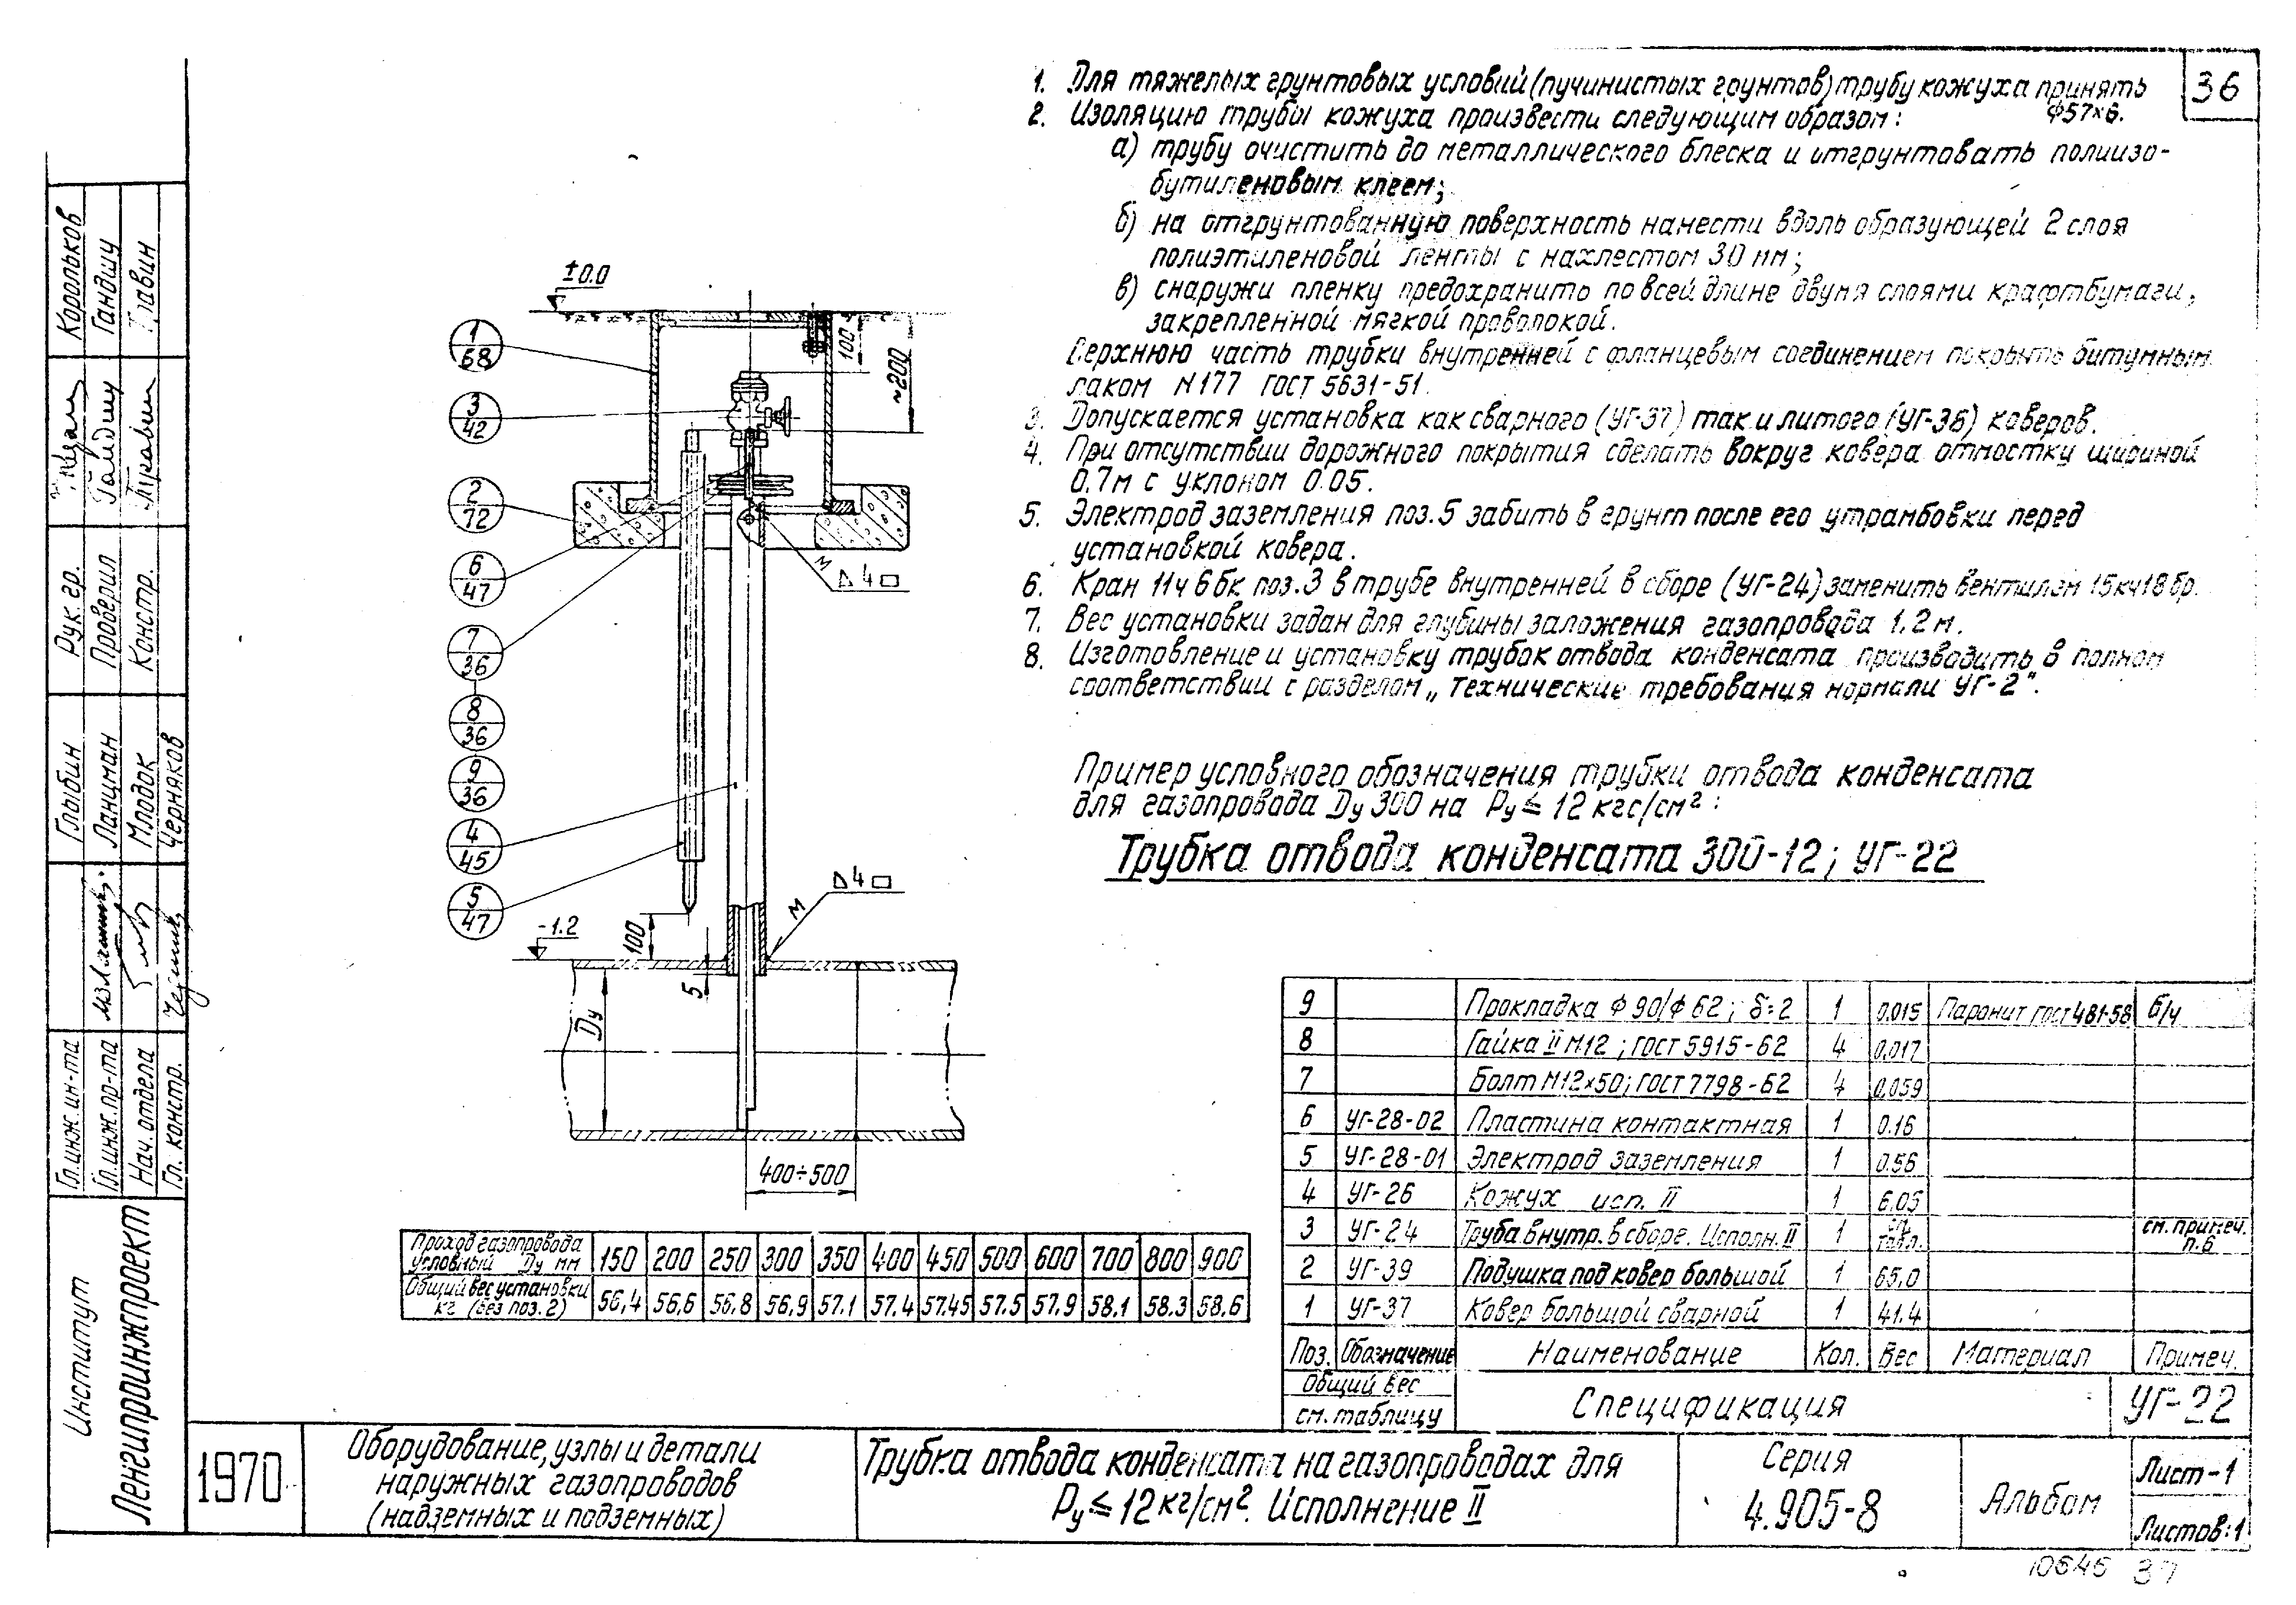 36
1. Для тяжелых грунтовых условий (пучинистых грунтов) трубу кожуха принять
ф57×6.
2. Изоляцию трубы кожуха произвести следующим образом:
а) трубу очистить до металлического блеска и отгрунтовать полиизо-
бутиленовым клеем;
б) на отгрунтованную поверхность нанести вдоль образующей 2 слоя
полиэтиленовой ленты с нахлестом 30 мм;
в) снаружи пленку предохранить по всей длине двумя слоями крафтбумаги,
закрепленной мягкой проволокой.
Верхнюю часть трубки внутренней с фланцевым соединением покрыть битумным
лаком N177 ГОСТ 5631-51.
3. Допускается установка как сварного (УГ-37) так и литого (УГ-36) коверов.
4. При отсутствии дорожного покрытия сделать вокруг ковера отмостку шириной
0.7м с уклоном 0.05.
5. Электрод заземления поз.5 забить в грунт после его утрамбовки перед
установкой ковера.
6. Кран 11ч6бк поз.3 в трубе внутренней в сборе (УГ-24) заменить вентилем 15кч18бр.
7. Вес установки задан для глубины заложения газопровода 1.2м.
8. Изготовление и установку трубок отвода конденсата производить в полном
соответствии с разделом „Технические требования нормали УГ-2".
Пример условного обозначения трубки отвода конденсата
для газопровода Ду 300 на Ру ≤ 12 кгс/см²:
Трубка отвода конденсата 300-12; УГ-22
±0.0
100
~200
1
68
3
42
2
72
6
47
7
36
8
36
9
36
4
45
5
47
М
Δ4□
Δ4□
М
-1.2
100
5
Ду
400÷500
Проход газопровода условный Ду мм 150 200 250 300 350 400 450 500 600 700 800 900
Общий вес установки кг (без поз. 2) 56,4 56,6 56.8 56,9 57.1 57.4 57.45 57.5 57.9 58.1 58.3 58.6
9 Прокладка ф90/ф62; δ=2 1 0.015 Паронит гост 481-58 б/ч
8 Гайка II М12; ГОСТ 5915-62 4 0,017
7 Болт М12×50; ГОСТ 7798-62 4 0,059
6 УГ-28-02 Пластина контактная 1 0.16
5 УГ-28-01 Электрод заземления 1 0.56
4 УГ-26 Кожух исп. II 1
3 УГ-24 Труба внутр. в сборе. Исполн. II 1 см. табл. см. примеч. п.6
2 УГ-39 Подушка под ковер большой 1 65,0
1 УГ-37 Ковер большой сварной 1 41.4
Поз. Обозначение Наименование Кол. Вес Материал Примеч.
Общий вес
см. таблицу
Спецификация
УГ-22
1970
Оборудование, узлы и детали
наружных газопроводов
(надземных и подземных)
Трубка отвода конденсата на газопроводах для
Ру ≤ 12 кг/см². Исполнение II
Серия
4.905-8
Альбом
Лист-1
Листов:1
10646 37
Институт
Ленгипроинжпроект
Гл.инж.ин-та Глыбин
Гл.инж.пр-та Ланцман
Нач. отдела Млодок
Гл. констр. Черняков
Рук. гр. Корольков
Проверил Гандшу
Констр.